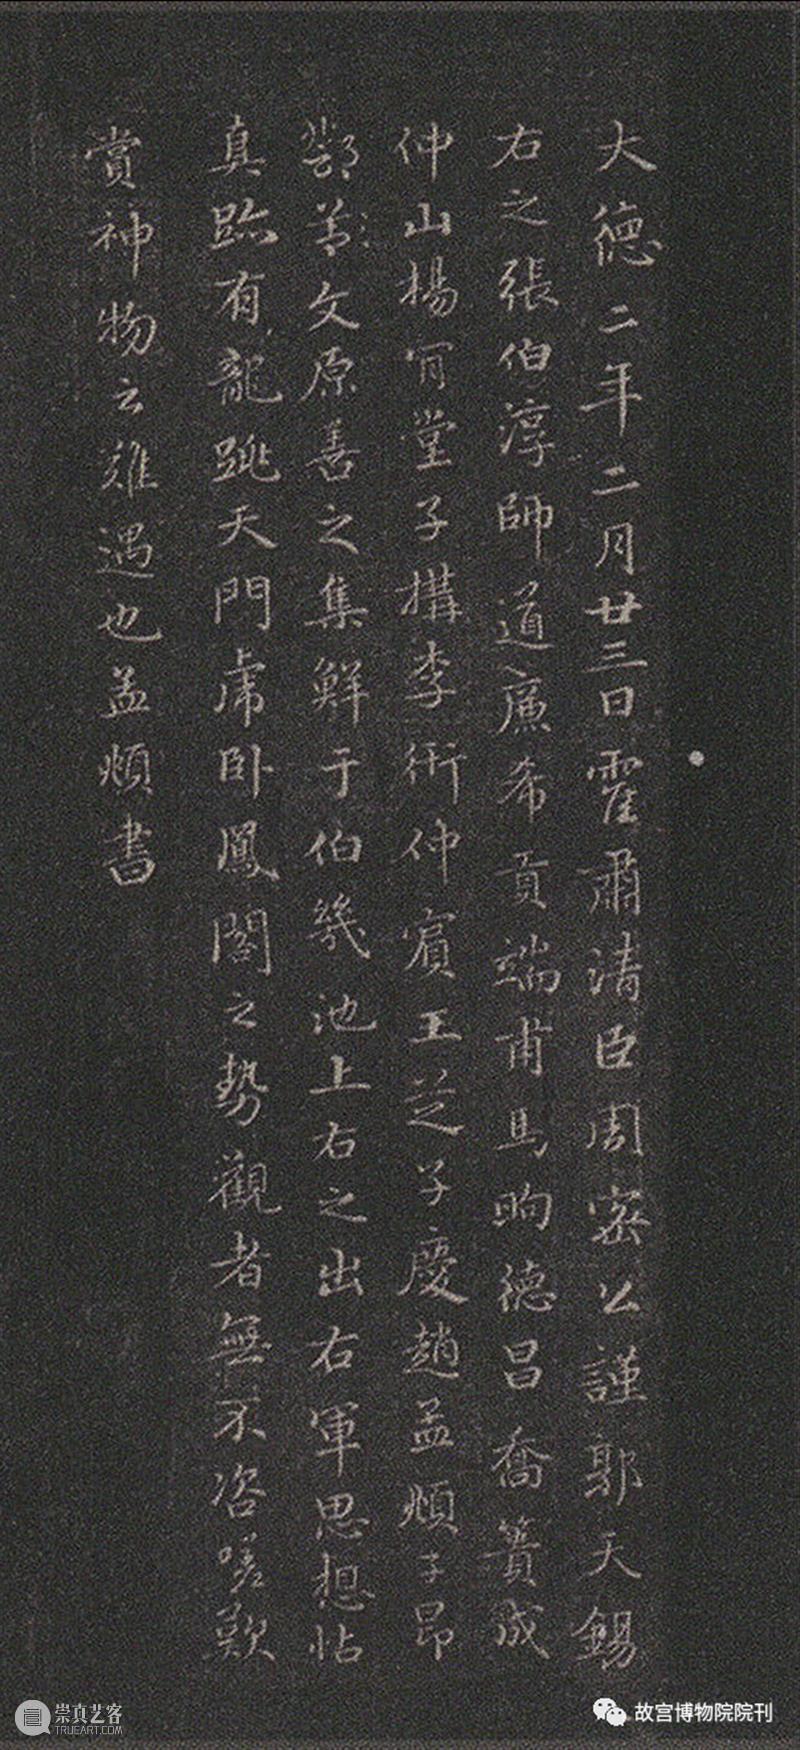 大德二年二月廿三日霍肅清臣周密公謹郭天錫
右之張伯淳師道廉希貢端甫馬昫德昌喬簣成
仲山楊肎堂子構李衎仲賓王芝子慶趙孟頫子昂
鄧文原善之集鮮于伯幾池上右之出右軍思想帖
真跡有龍跳天門虎卧鳳閣之勢觀者無不咨嗟歎
賞神物之難遇也孟頫書
崇真艺客
TRUEART.COM
故宫博物院院刊